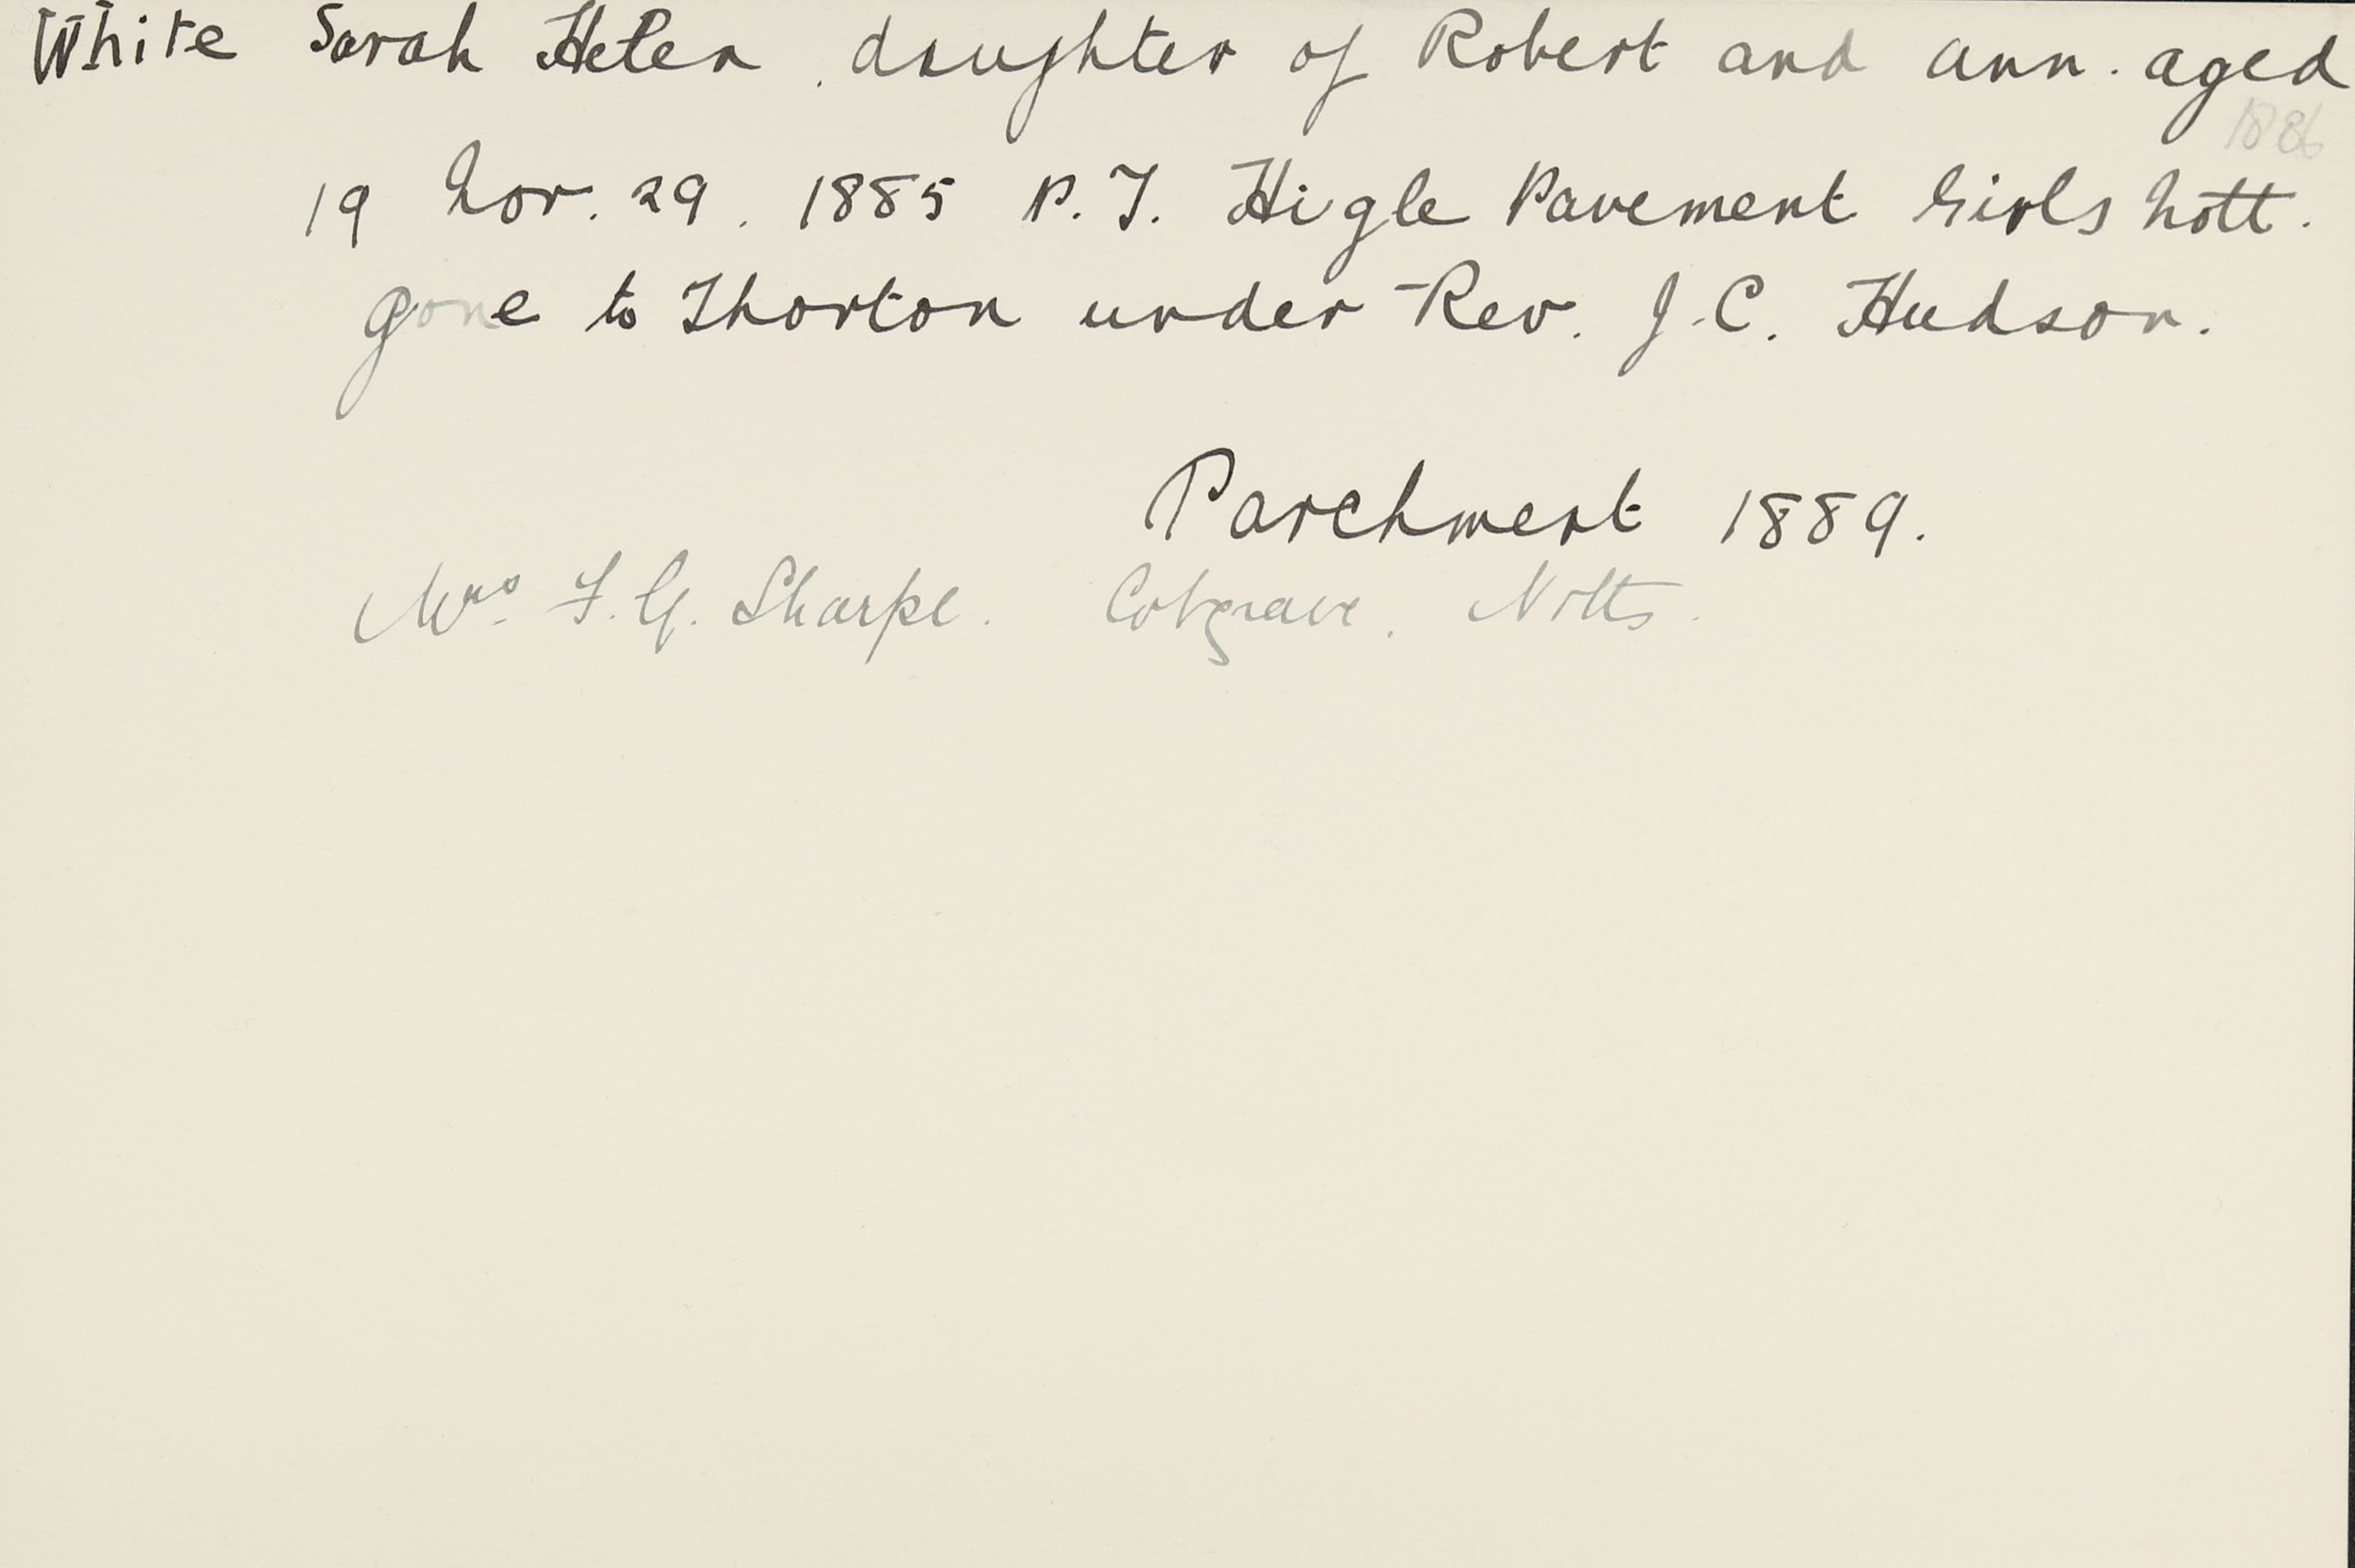 White Sarah Helen. daughter of Robert and Ann. aged
1886
19 Nov. 29. 1885 P.T. Higle Pavement Girls Nott.
gone to Thorton under Rev. J.C. Hudson.
Parchment 1889.
Mrs. F.G. Sharpe. Cotgrave. Notts.